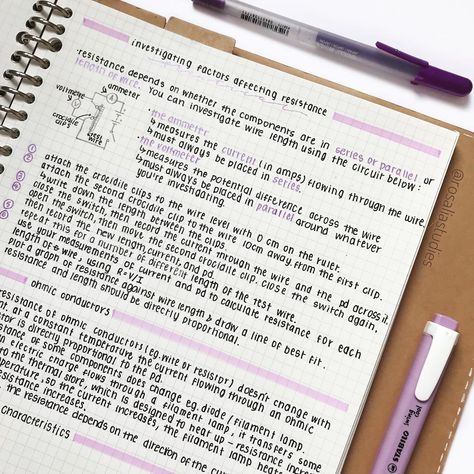 investigating factors affecting resistance
·resistance depends on whether the components are in series or parallel or
length of wire. You can investigate wire length using the circuit below:
voltmeter
ammeter
V
A
crocodile clips
test wire
·the ammeter
↳measures the current (in amps) flowing through the wire
↳must always be placed in series.
·the voltmeter
↳measures the potential difference across the wire
↳must always be placed in parallel around whatever
you're investigating.
① attach the crocodile clips to the wire level with 0 cm on the ruler.
② attach the second crocodile clip to the wire 10cm away from the first clip.
↳write down the length between the clips.
③ close the switch, then record the current through the wire and the pd across it.
④ open the switch, then move the second crocodile clip, close the switch again,
then record the new length, current, and pd.
⑤ repeat this for a number of different length of the test wire.
use your measurements of current and pd to calculate resistance for each
length of wire, using R=V/I
plot a graph of resistance against wire length & draw a line of best fit.
resistance and length should be directly proportional.
ohmic conductors
resistance of ohmic conductors (eg wire or resistor) doesn't change with
at a constant temperature, the current flowing through an ohmic
is directly proportional to the pd.
resistance of some components does change eg. diode / filament lamp.
electric charge flows through a filament lamp, it transfers some
to the thermal store, which is designed to heat up - resistance
temperature, so the current increases, the filament lamp heats
resistance increases.
the resistance depends on the direction of the
characteristics
@rosaliastudies
STABILO
swing cool